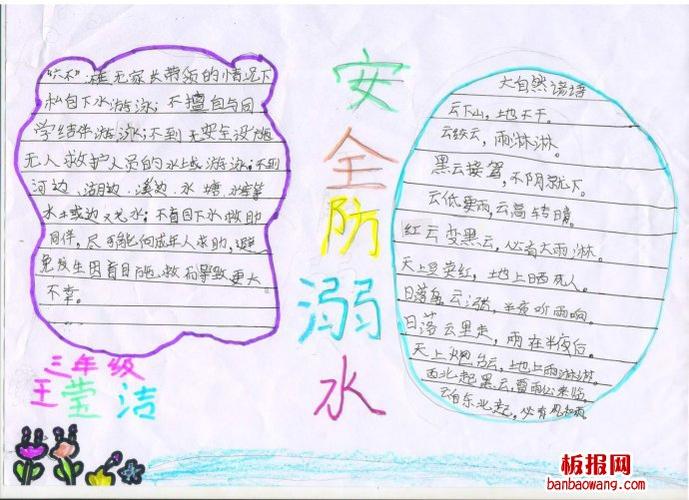 "六不"：无家长带领的情况下
私自下水游泳；不擅自与同
学结伴游泳；不到无安全设施
无人救护人员的水域游泳；不到
河边、湖边、溪边、水塘、水库等
水；不盲目下水救助
同伴，尽可能向成年人求助，避
免发生因盲目施救而导致更大
不幸。
三年级
王莹洁
安全防溺水
大自然
云下山，地不干。
云绞云，雨淋淋。
黑云接驾，不阴就下。
云低要雨，云高转晴。
红云变黑云，必有大雨淋。
天上红，地上晒死人。
日落乌云涨，半夜听雨响。
日落云里走，雨在半夜后。
天上炮台云，地上雨淋淋。
西北起黑云，雷雨必来临。
云自东北起，必有风和雨。
板报网
banbaowang.com